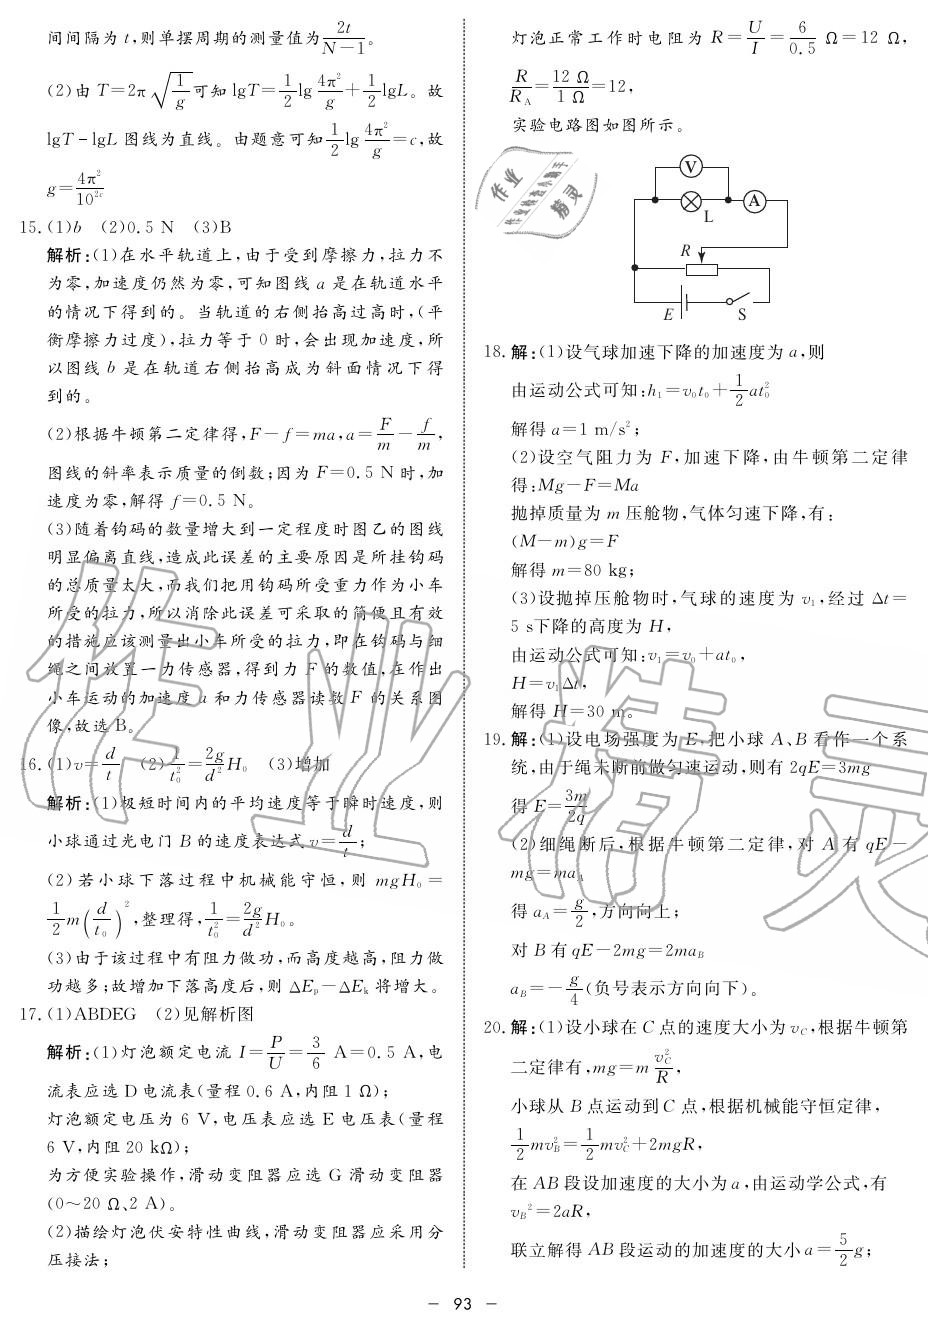 间间隔为 t,则单摆周期的测量值为2t/(N-1)。
(2)由 T=2π√(1/g)可知 lgT=1/2 lg 4π²/g+1/2 lgL。故
lgT-lgL 图线为直线。由题意可知1/2 lg 4π²/g=c,故
g=4π²/10²ᶜ
15.(1)b (2)0.5 N (3)B
解析:(1)在水平轨道上,由于受到摩擦力,拉力不
为零,加速度仍然为零,可知图线 a 是在轨道水平
的情况下得到的。当轨道的右侧抬高过高时,(平
衡摩擦力过度),拉力等于 0 时,会出现加速度,所
以图线 b 是在轨道右侧抬高成为斜面情况下得
到的。
(2)根据牛顿第二定律得,F-f=ma,a=F/m-f/m,
图线的斜率表示质量的倒数;因为 F=0.5 N 时,加
速度为零,解得 f=0.5 N。
(3)随着钩码的数量增大到一定程度时图乙的图线
明显偏离直线,造成此误差的主要原因是所挂钩码
的总质量太大,而我们把用钩码所受重力作为小车
所受的拉力,所以消除此误差可采取的简便且有效
的措施应该测量出小车所受的拉力,即在钩码与细
绳之间放置一力传感器,得到力 F 的数值,在作出
小车运动的加速度 a 和力传感器读数 F 的关系图
像,故选 B。
16.(1)v=d/t (2)1/t₀²=2g/d² H₀ (3)增加
解析:(1)极短时间内的平均速度等于瞬时速度,则
小球通过光电门 B 的速度表达式 v=d/t;
(2)若小球下落过程中机械能守恒,则 mgH₀=
1/2 m(d/t₀)²,整理得,1/t₀²=2g/d² H₀。
(3)由于该过程中有阻力做功,而高度越高,阻力做
功越多;故增加下落高度后,则 ΔEₚ-ΔEₖ 将增大。
17.(1)ABDEG (2)见解析图
解析:(1)灯泡额定电流 I=P/U=3/6 A=0.5 A,电
流表应选 D 电流表(量程 0.6 A,内阻 1 Ω);
灯泡额定电压为 6 V,电压表应选 E 电压表(量程
6 V,内阻 20 kΩ);
为方便实验操作,滑动变阻器应选 G 滑动变阻器
(0~20 Ω、2 A)。
(2)描绘灯泡伏安特性曲线,滑动变阻器应采用分
压接法;
灯泡正常工作时电阻为 R=U/I=6/0.5 Ω=12 Ω,
R/R_A=12 Ω/1 Ω=12,
实验电路图如图所示。
V
L
A
R
E
S
18.解:(1)设气球加速下降的加速度为 a,则
由运动公式可知:h₁=v₀t₀+1/2 at₀²
解得 a=1 m/s²;
(2)设空气阻力为 F,加速下降,由牛顿第二定律
得:Mg-F=Ma
抛掉质量为 m 压舱物,气体匀速下降,有:
(M-m)g=F
解得 m=80 kg;
(3)设抛掉压舱物时,气球的速度为 v₁,经过 Δt=
5 s下降的高度为 H,
由运动公式可知:v₁=v₀+at₀,
H=v₁Δt,
解得 H=30 m。
19.解:(1)设电场强度为 E,把小球 A、B 看作一个系
统,由于绳未断前做匀速运动,则有 2qE=3mg
得 E=3m/2q
(2)细绳断后,根据牛顿第二定律,对 A 有 qE-
mg=ma_A
得 a_A=g/2,方向向上;
对 B 有 qE-2mg=2ma_B
a_B=-g/4(负号表示方向向下)。
20.解:(1)设小球在 C 点的速度大小为 v_C,根据牛顿第
二定律有,mg=m v_C²/R,
小球从 B 点运动到 C 点,根据机械能守恒定律,
1/2 mv_B²=1/2 mv_C²+2mgR,
在 AB 段设加速度的大小为 a,由运动学公式,有
v_B²=2aR,
联立解得 AB 段运动的加速度的大小 a=5/2 g;
- 93 -
作业精灵